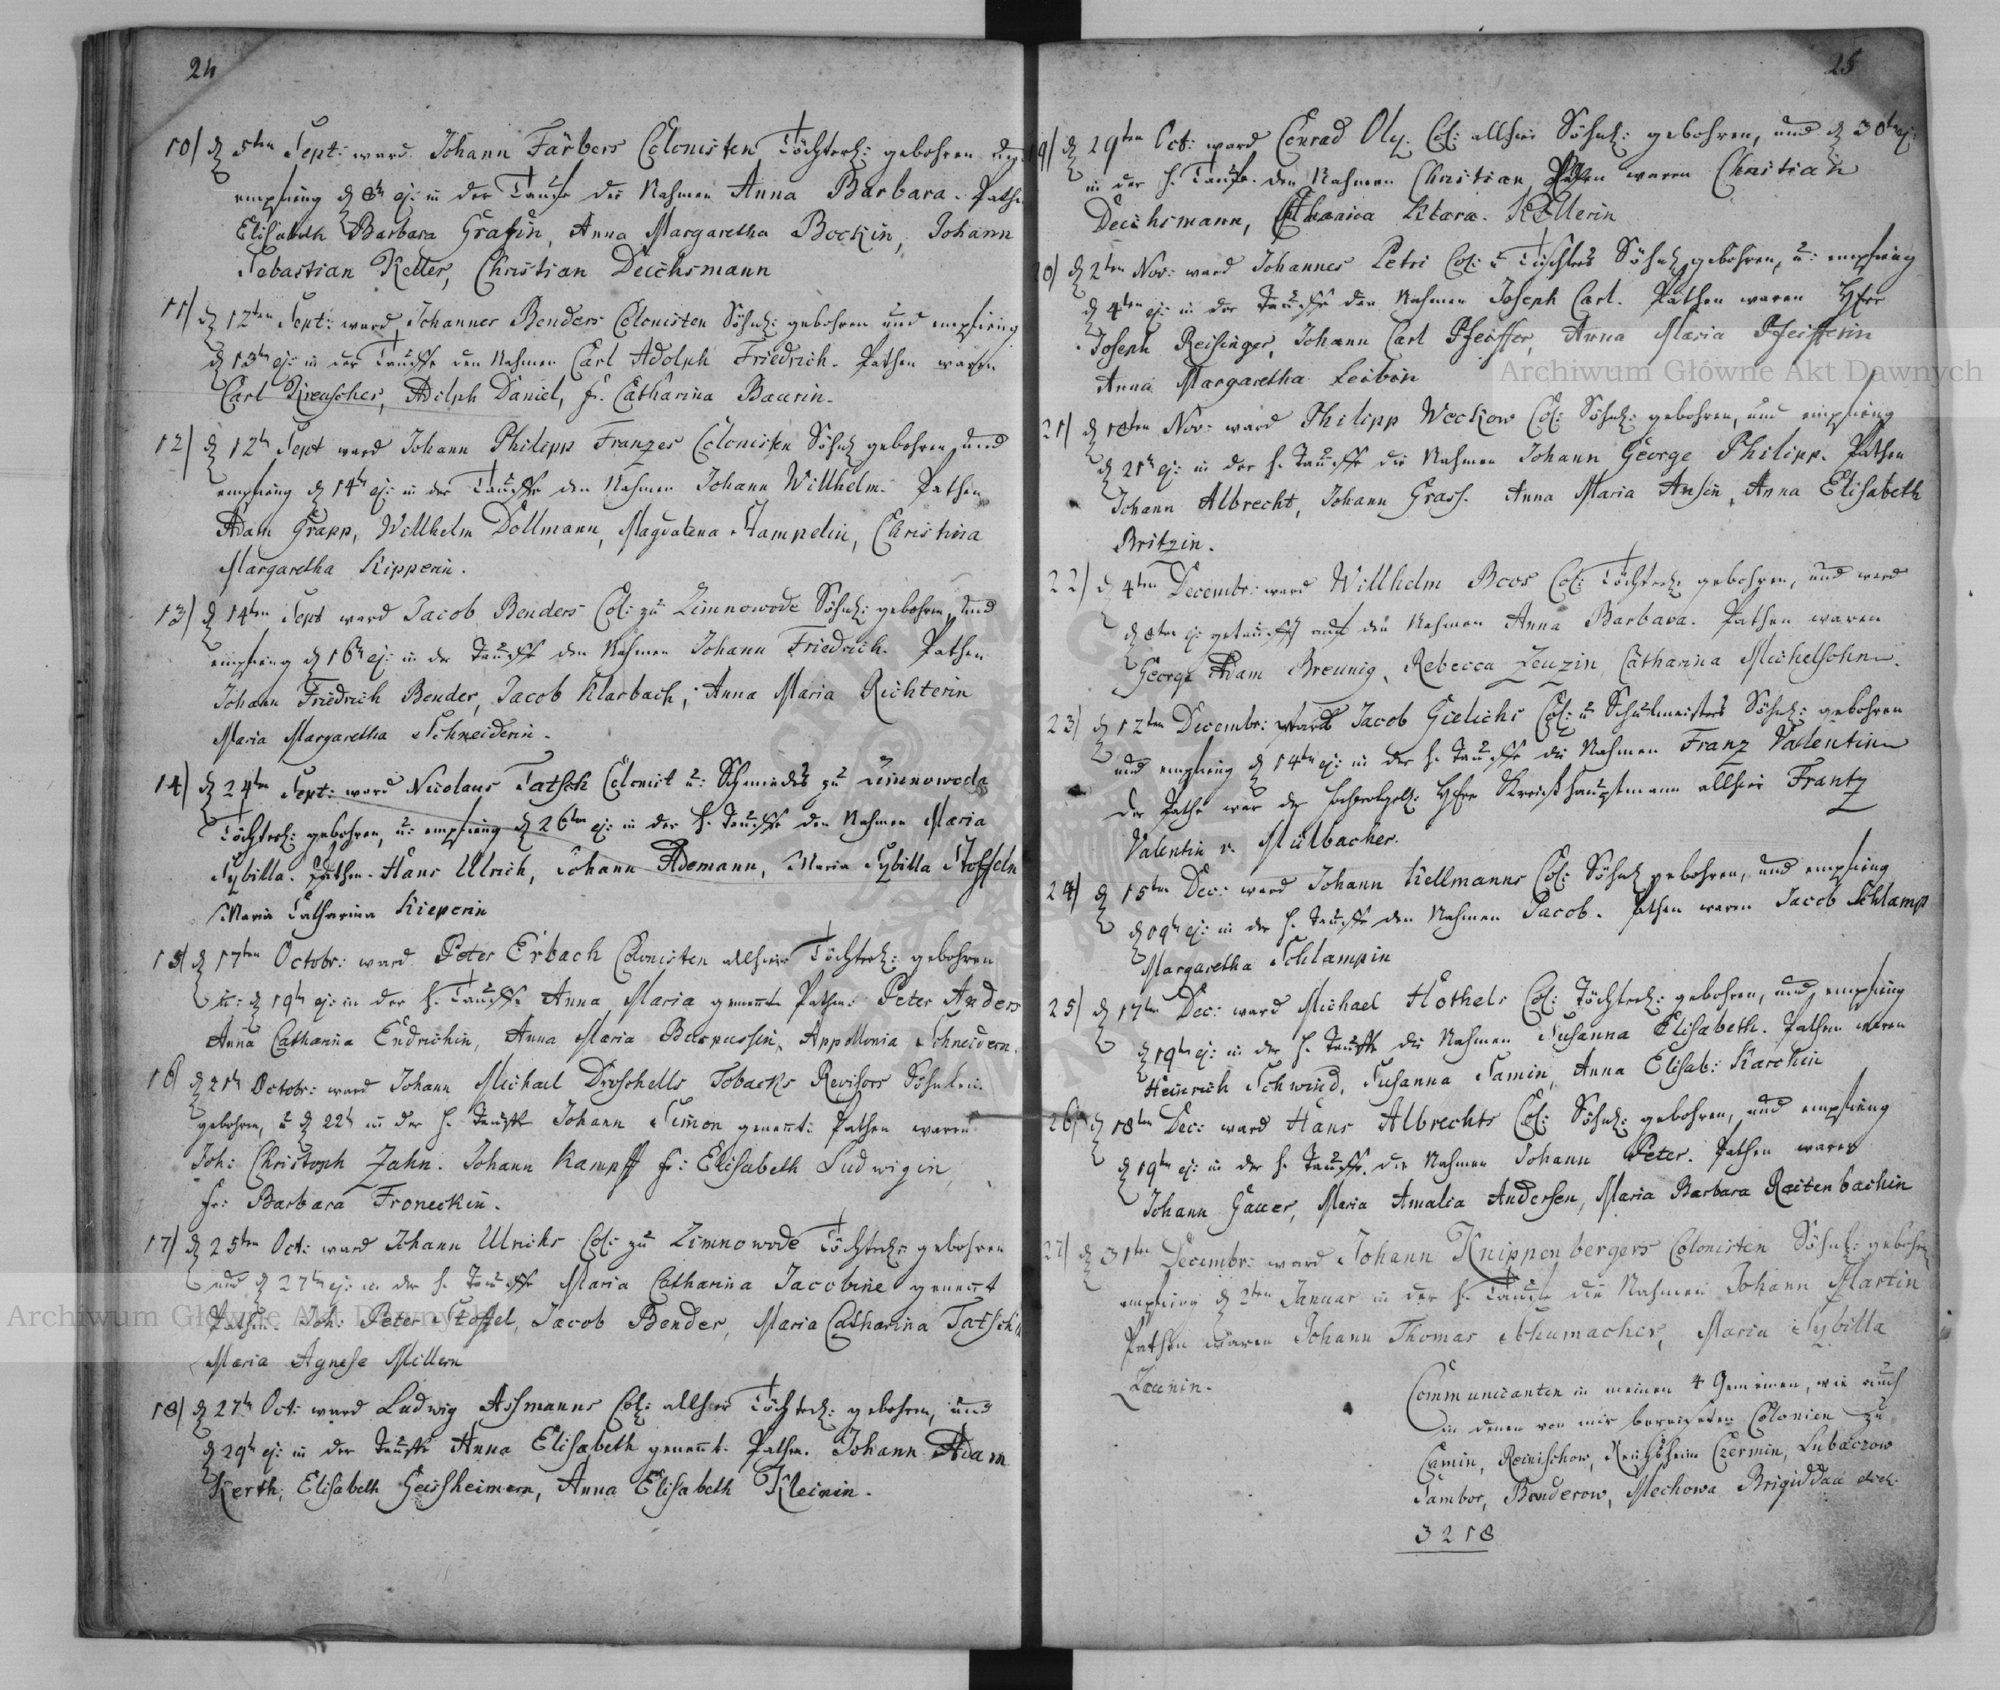 24
10) d 5ten Sept: ward Johann Färbers Colonisten Töchterl: gebohren und
empfieng d 8ten ej: in der Taufe die Nahmen Anna Barbara. Pathen
Elisabeth Barbara Grafin, Anna Margaretha Bockin, Johann
Sebastian Keller, Christian Deichsmann
11) d 12ten Sept: ward Johannes Benders Colonisten Söhnl: gebohren und empfieng
d 13ten ej: in der Tauffe den Nahmen Carl Adolph Friedrich. Pathen waren
Carl Kreuscher, Adolph Daniel, fr. Catharina Baurin.
12) d 12ten Sept ward Johann Philipp Franzes Colonisten Söhnl gebohren, und
empfieng d 14ten ej: in der Tauffe den Nahmen Johann Willhelm. Pathen
Adam Grapp, Willhelm Dollmann, Magdalena Stampelin, Christina
Margaretha Kipperin.
13) d 14ten Sept ward Jacob Benders Col: zu Zimnowode Söhnl: gebohren, und
empfieng d 16ten ej: in der Tauffe den Nahmen Johann Friedrich. Pathen
Johann Friedrich Bender, Jacob Klarbach, Anna Maria Richterin
Maria Margaretha Schneiderin.
14) d 24ten Sept: ward Nicolaus Tatsch Colonist u: Schmiedes zu Zimnowoda
Töchterl: gebohren, u: empfieng d 26ten ej: in der h. Tauffe den Nahmen Maria
Sybilla. Pathen. Hans Ulrich, Johann Ademann, Maria Sybilla Stoffeln
Maria Catharina Kieperin
15) d 17ten Octobr: ward Peter Erbach Colonisten allhier Töchterl: gebohren
u: d 19ten ej: in der h. Tauffe Anna Maria genennt Pathen: Peter Anders
Anna Catharina Endrichin, Anna Maria Appollonia Schneidern.
16) d 21ten Octobr: ward Johann Michael Droschells Tobacks Revisors Söhnlein
gebohren, u d 22ten in der h. Tauffe Johann Simon genennt: Pathen waren
Joh: Christoph Zahn. Johann Kampff fr: Elisabeth Ludwigin
fr: Barbara Froneckin.
17) d 25ten Oct: ward Johann Ulrichs Col: zu Zimnowode Töchterl: gebohren
und d 27ten ej: in der h. Tauffe Maria Catharina Jacobine genennt
Pathen. Joh: Peter Stoffel, Jacob Bender, Maria Catharina Tatsch
Maria Agnesa Millern
18) d 27ten Oct: ward Ludwig Assmanns Col: allhier Töchterl: gebohren, und
d 29ten ej: in der Tauffe Anna Elisabeth genennt. Pathen. Johann Adam
Kerth, Elisabeth Geissheimern, Anna Elisabeth Kleinin.
25
19) d 29ten Oct: ward Conrad Oly. Col: allhier Söhnl: gebohren, und d 30ten ej:
in der h. Taufe. den Nahmen Christian Pathen waren Christian
Deichsmann, Klara. Köllerin
20) d 2ten Nov: ward Johannes Petri Col: u Tischlers Söhnl: gebohren, u: empfieng
d 4ten ej: in der Tauffe den Nahmen Joseph Carl. Pathen waren Herr
Joseph Reisinger, Johann Carl Pfeiffer, Anna Maria Pfeifferin
Anna Margaretha Leibin
21) d 18ten Nov: ward Philipp Weckow Col: Söhnl: gebohren, und empfieng
d 21ten ej: in der h. Tauffe die Nahmen Johann George Philipp. Pathen
Johann Albrecht, Johann Grass. Anna Maria Ansin, Anna Elisabeth
Britzin.
22) d 4ten Decembr: ward Willhelm Boos Col: Töchterl: gebohren, und ward
d 8ten ej: getaufft auf die Nahmen Anna Barbara. Pathen waren
George Adam Breunig, Rebecca Leuzin Catharina Michelsohn.
23) d 12ten Decembr: ward Jacob Gielichs Col: u Schulmeisters Söhnl: gebohren
und empfieng d 14ten ej: in der h. Tauffe die Nahmen Franz Valentin
der Pathe war der Herr Kreishauptmann allhier Frantz
Valentin v. Mülbacher.
24) d 15ten Dec: ward Johann Kellmanns Col: Söhnl gebohren, und empfieng
d 19ten ej: in der h. Tauffe den Nahmen Jacob. Pathen waren Jacob Schlamp
Margaretha Schlampin
25) d 17ten Dec: ward Michael Hothels Col: Töchterl: gebohren, und empfieng
d 19ten ej: in der h. Tauffe die Nahmen Susanna Elisabeth. Pathen waren
Heinrich Schwind, Susanna Samin, Anna Elisab: Karchin
26) d 18ten Dec: ward Hans Albrechts Col: Söhnl: gebohren, und empfieng
d 19ten ej: in der h. Tauffe. die Nahmen Johann Peter. Pathen waren
Johann Gauer, Maria Amalia Andersen, Maria Barbara Reitenbachin
27) d 31ten Decembr: ward Johann Knippenbergers Colonisten Söhnl: gebohren
empfieng d 2ten Januar in der h. Taufe die Nahmen Johann Martin
Pathen waren Johann Thomas Schumacher, Maria Sybilla
Zaunin.
Communicanten in meinen 4 Gemeinen, wie auch
in denen von mir bereiseten Colonien zu
Camin, Reinischow, Reichsheim Czermin, Lubaczow
Sambor, Banderow, Mechowa Brigiddau etc:
3218
Archiwum Główne Akt Dawnych
Archiwum Główne Akt Dawnych